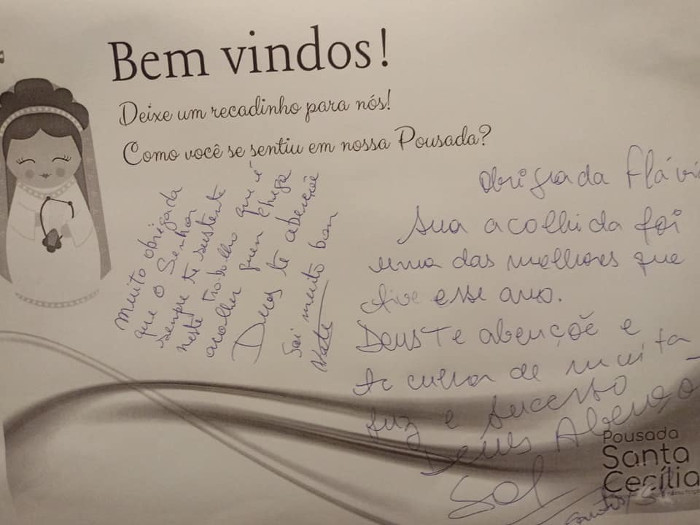 Bem vindos!
Deixe um recadinho para nós!
Como você se sentiu em nossa Pousada?
Muito obrigada
que o Senhor
sempre te sustente
neste trabalho que é
acolher quem chega
Deus te abençoê
foi muito bom
Obrigada Flávi
Sua acolhida foi
uma das melhores que
tive esse ano.
Deus Te abençõe e
Te cumra de muita
luz e sucesso
Deus Abenço
Sol
Pousada
Santa
Cecília